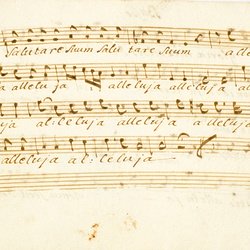 Salutare suum Salu tare suum alle
ja alleluja alleluja alleluja al
ja al:leluja alleluja alleluja
alleluja al:leluja